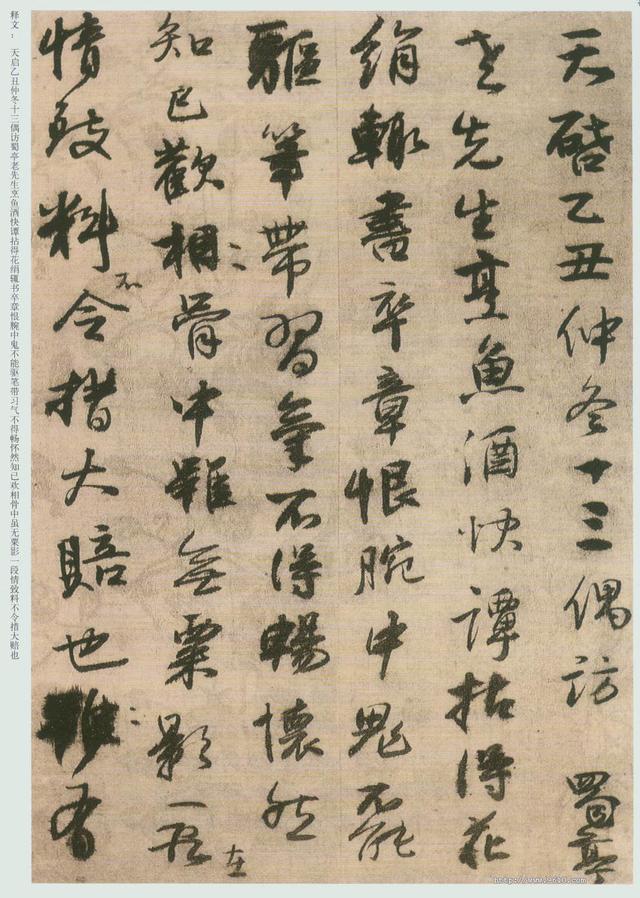 天啓乙丑仲冬十三偶訪蜀亭
老先生烹魚酒快譚拈得花
絹輙書卒章恨腕中鬼不能
驅筆帶習氣不得暢懷然
知已歡相骨中雖無粟影一段在
情致料不令措大賠也雖有
释文： 天启乙丑仲冬十三偶访蜀亭老先生烹鱼酒快谭拈得花绢辄书卒章恨腕中鬼不能驱笔带习气不得畅怀然知已欢相骨中虽无粟影一段情致料不令措大赔也
http://www.9610.com